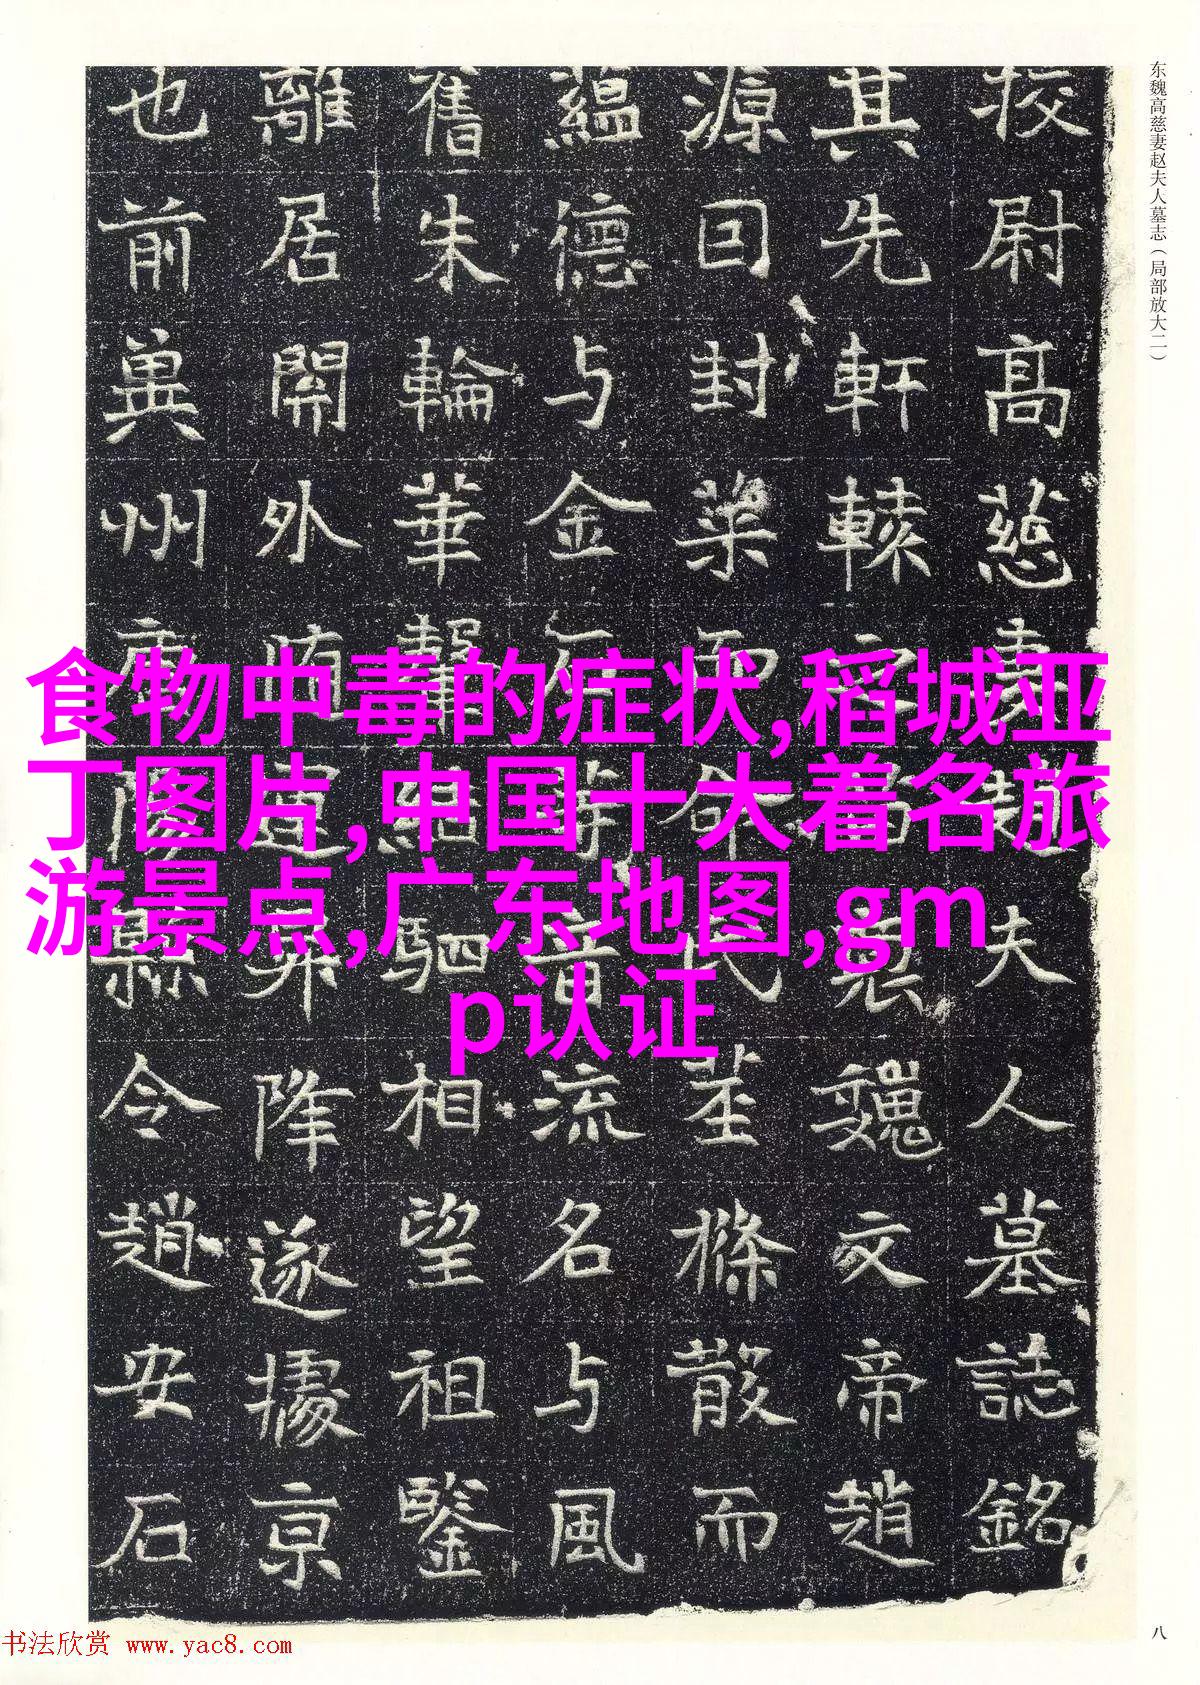 东魏高慈妻赵夫人墓志（局部放大二）
挍尉高慈妻趙夫人墓誌銘
其先軒轅之魏文帝趙
源囙封枼而命氏莖條散而
蘊德与金石等音流名与風
舊朱輪華轂紹駟相望祖鑒
離居開外降遂據京
也前冀州陽縣令趙安石
食物中毒的症状,稻城亚
丁图片,中国十大着名旅
游景点,广东地图,gm
p认证
书法欣赏 www.yac8.com
八